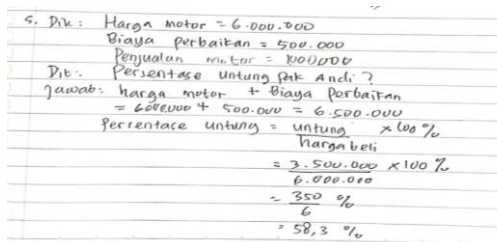 5. Dik : Harga motor = 6.000.000
Biaya perbaikan = 500.000
Penjualan motor = 1000000
Dit : Persentase untung pak Andi ?
Jawab : harga motor + Biaya Perbaikan
= 6000.000 + 500.000 = 6.500.000
Persentase untung = untung x 100 %
harga beli
= 3.500.000 x 100 %
6.000.000
= 350 %
6
= 58,3 %